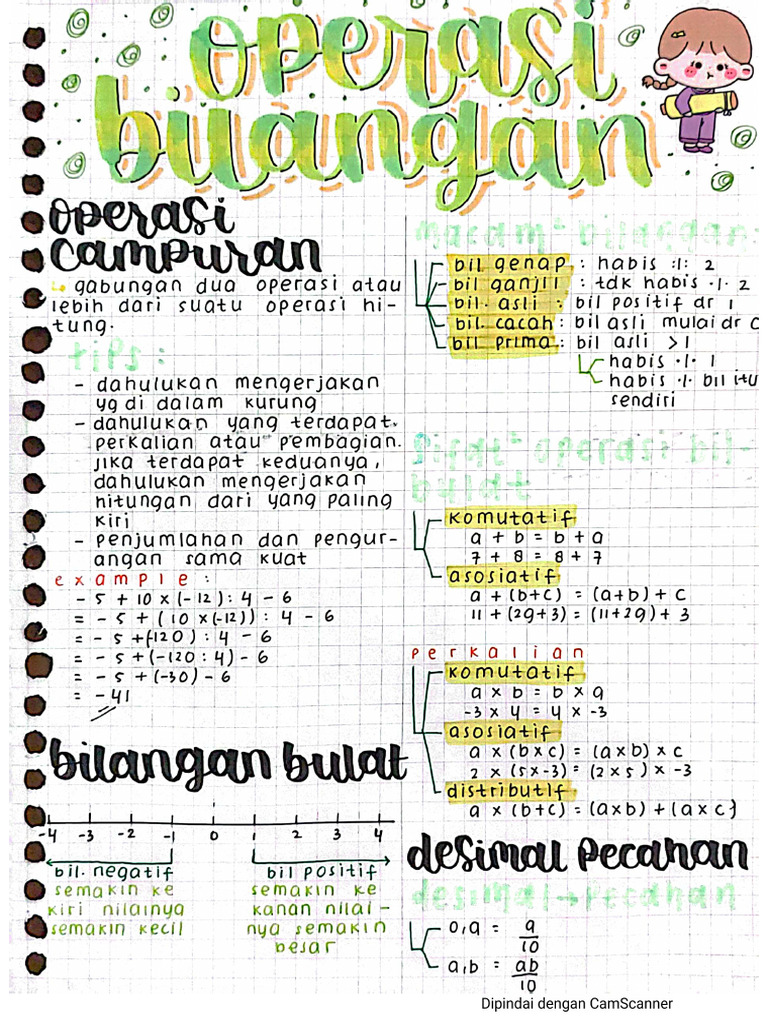 operasi
bilangan
operasi
campuran
gabungan dua operasi atau
lebih dari suatu operasi hi-
tung.
tips :
- dahulukan mengerjakan
yg di dalam kurung
- dahulukan yang terdapat
perkalian atau pembagian.
jika terdapat keduanya,
dahulukan mengerjakan
hitungan dari yang paling
kiri
- penjumlahan dan pengur-
angan sama kuat
example :
- 5 + 10 × (-12) : 4 - 6
= - 5 + ( 10 × (-12)) : 4 - 6
= - 5 + (-120) : 4 - 6
= - 5 + (-120 : 4) - 6
= - 5 + (-30) - 6
= - 41
bilangan bulat
-4 -3 -2 -1 0 1 2 3 4
bil. negatif
semakin ke
kiri nilainya
semakin kecil
bil positif
semakin ke
kanan nilai-
nya semakin
besar
macam² bilangan:
bil genap : habis :|: 2
bil ganjil : tdk habis ·|· 2
bil. asli : bil positif dr 1
bil. cacah : bil asli mulai dr 0
bil prima : bil asli > 1
habis ·|· 1
habis ·|· bil itu
sendiri
Sifat² operasi bil-
bulat
komutatif
a + b = b + a
7 + 8 = 8 + 7
asosiatif
a + (b+c) = (a+b) + c
11 + (29+3) = (11+29) + 3
perkalian
komutatif
a × b = b × a
-3 × 4 = 4 × -3
asosiatif
a × (b×c) = (a×b) × c
2 × (5×-3) = (2×5) × -3
distributif
a × (b+c) = (a×b) + (a×c)
desimal pecahan
desimal → pecahan
0,a = a/10
a,b = ab/10
Dipindai dengan CamScanner